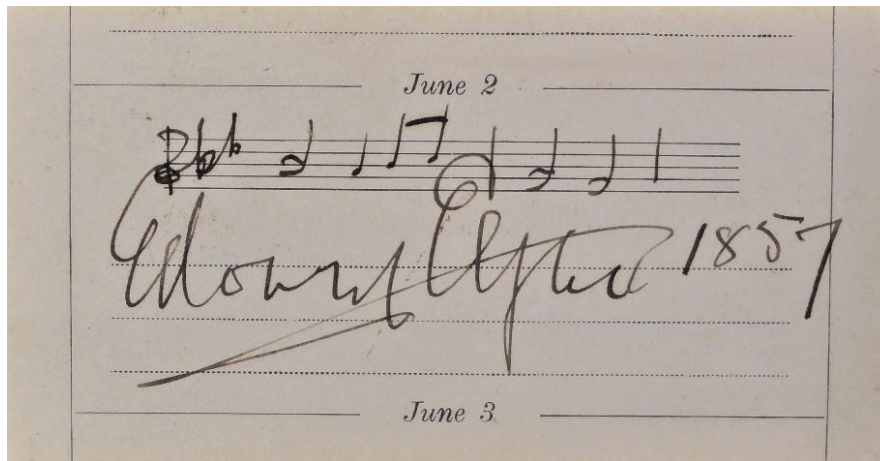 June 2
Edward Elgar 1857
June 3